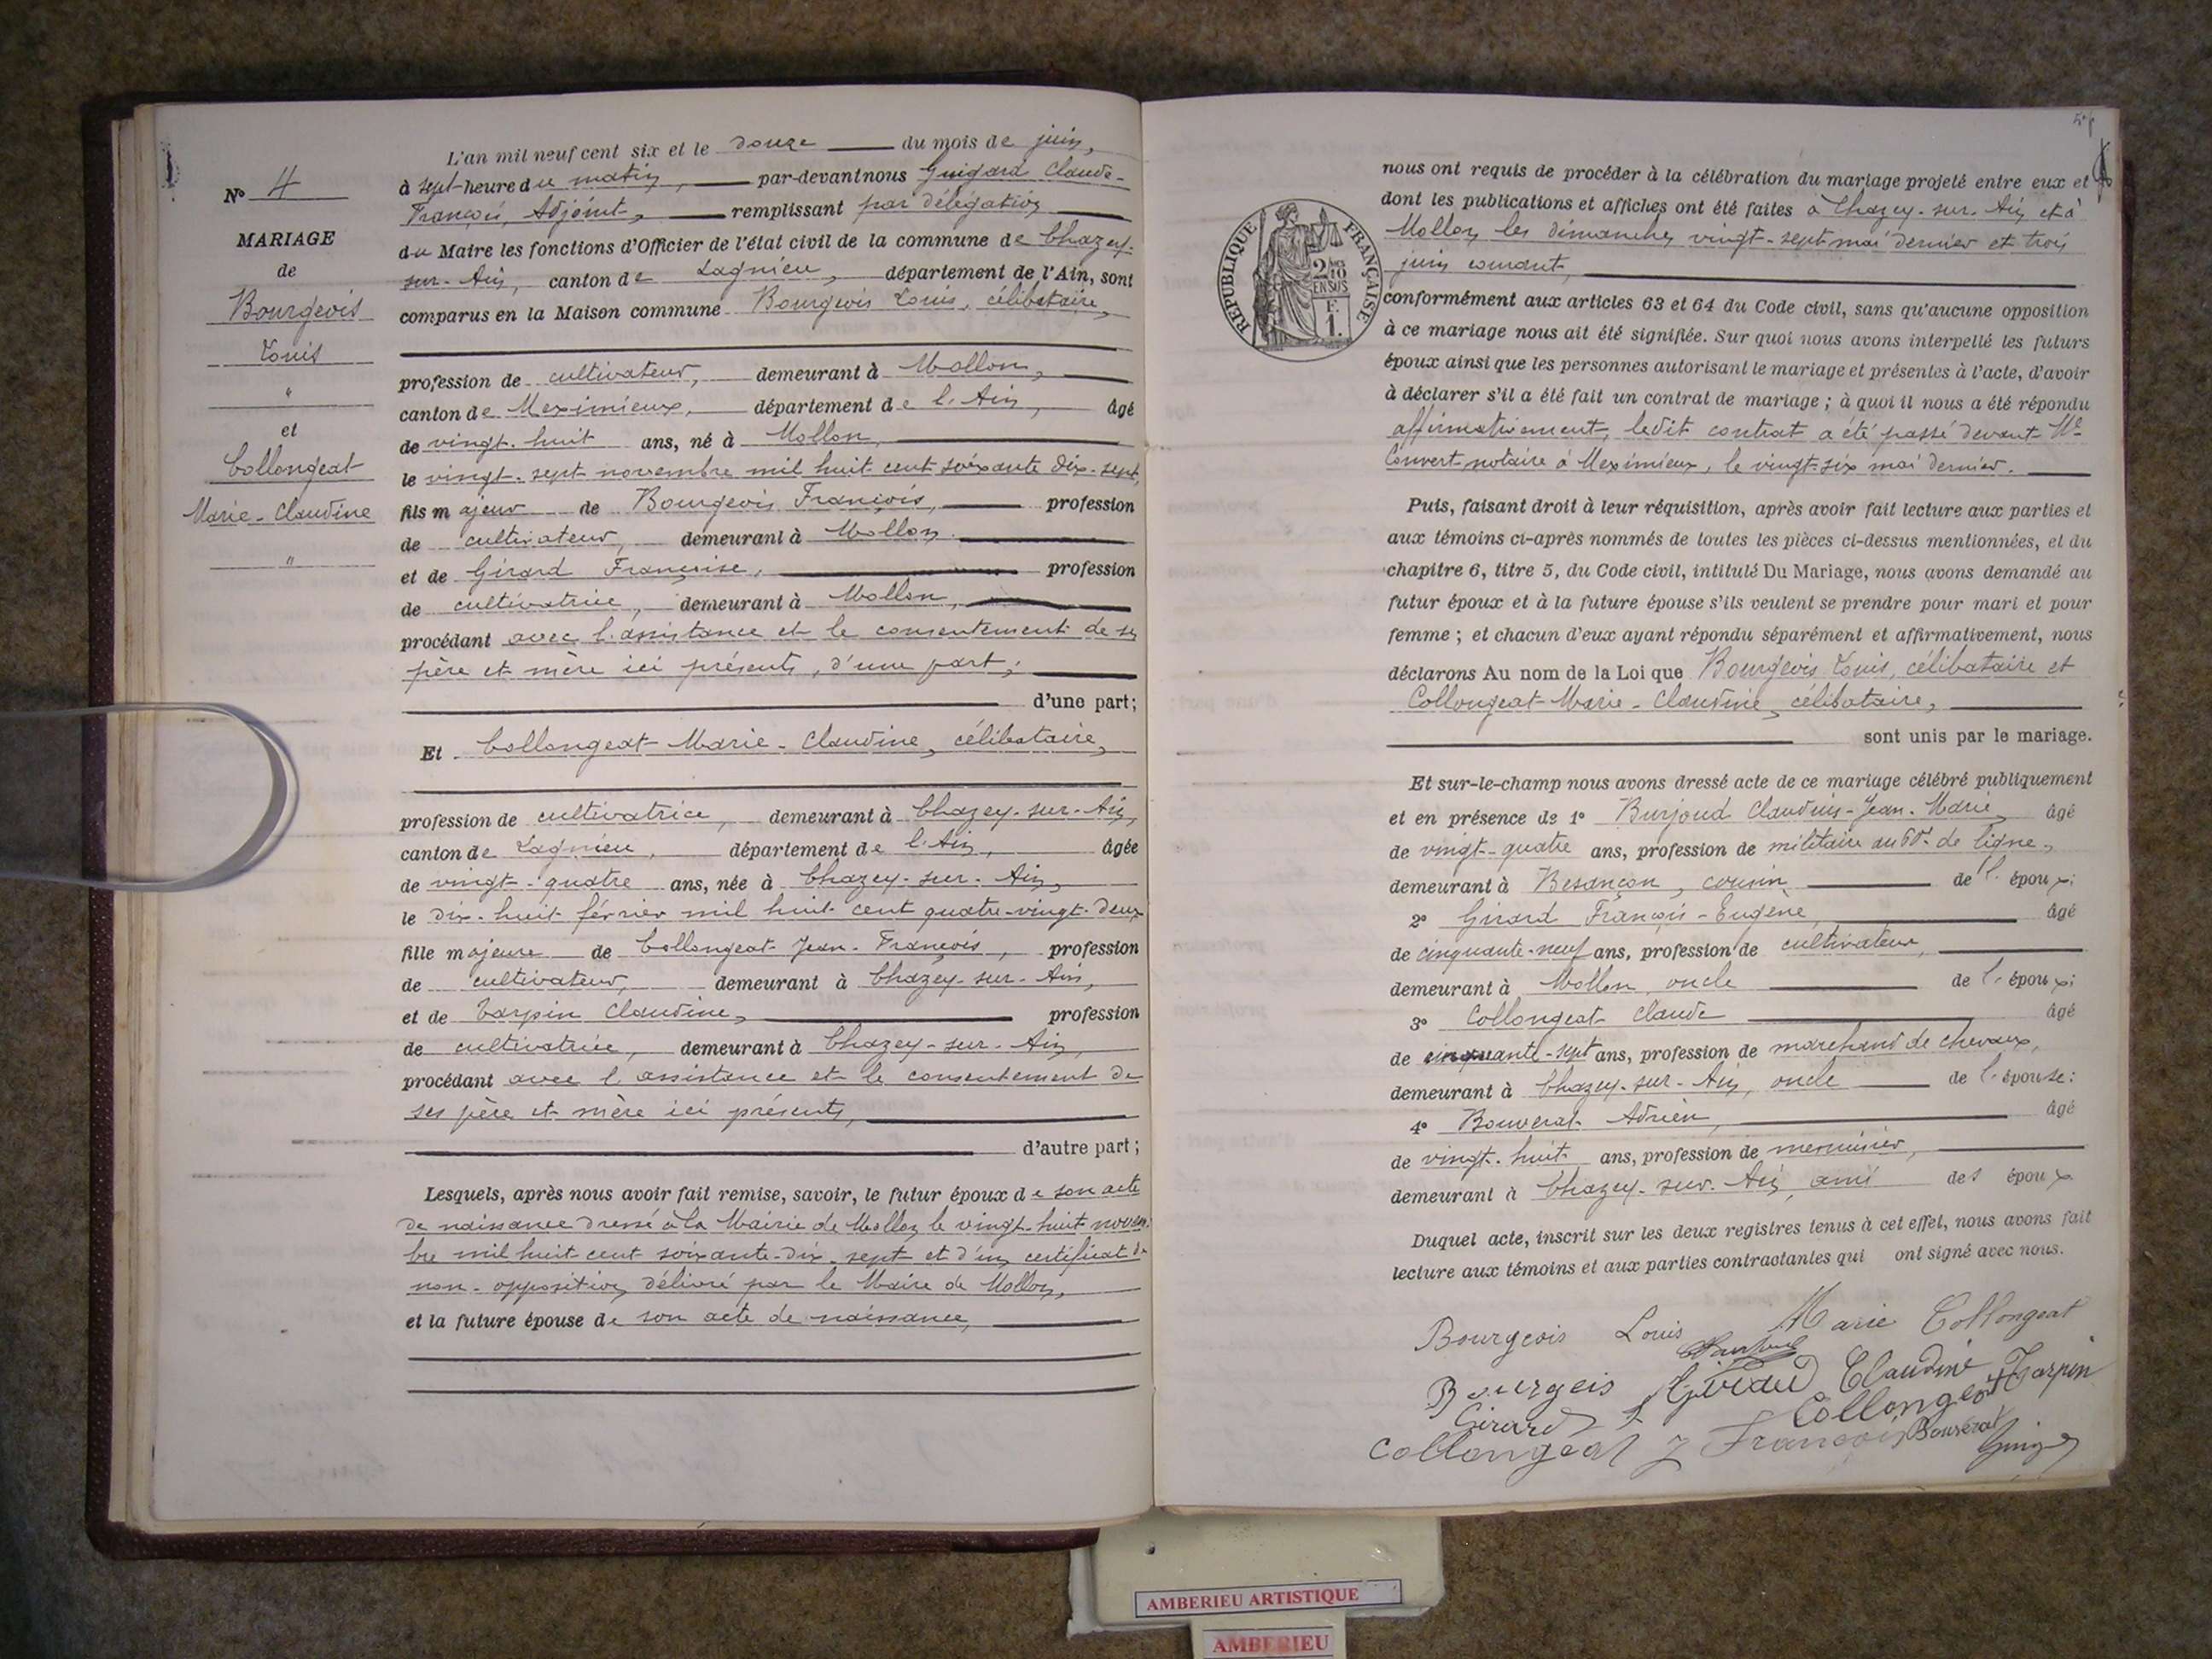 L'an mil neuf cent six et le douze du mois de juin,
à sept heure du matin, par-devant nous Guigard Claude-
François, Adjoint, remplissant par délégation
du Maire les fonctions d'Officier de l'état civil de la commune de Chazey-
sur-Ain, canton de Lagnieu, département de l'Ain, sont
comparus en la Maison commune Bourgeois Louis, célibataire,
profession de cultivateur, demeurant à Mollon,
canton de Meximieux, département de l'Ain, âgé
de vingt-huit ans, né à Mollon,
le vingt-sept novembre mil huit cent soixante dix-sept,
fils majeur de Bourgeois François, profession
de cultivateur, demeurant à Mollon
et de Girard Françoise, profession
de cultivatrice, demeurant à Mollon,
procédant avec l'assistance et le consentement de ses
père et mère ici présents, d'une part,
d'une part;
Et Collongeat Marie-Claudine, célibataire,
profession de cultivatrice, demeurant à Chazey-sur-Ain,
canton de Lagnieu, département de l'Ain, âgée
de vingt-quatre ans, née à Chazey-sur-Ain,
le dix-huit février mil huit cent quatre-vingt-deux
fille majeure de Collongeat Jean-François, profession
de cultivateur, demeurant à Chazey-sur-Ain,
et de Tarpin Claudine, profession
de cultivatrice, demeurant à Chazey-sur-Ain,
procédant avec l'assistance et le consentement de
ses père et mère ici présents,
d'autre part;
Lesquels, après nous avoir fait remise, savoir, le futur époux de son acte
de naissance dressé à la Mairie de Mollon le vingt-huit novem-
bre mil huit cent soixante-dix-sept et d'un certificat de
non-opposition délivré par le Maire de Mollon,
et la future épouse de son acte de naissance,
No 4
MARIAGE
de
Bourgeois
Louis
"
et
Collongeat
Marie-Claudine
"
nous ont requis de procéder à la célébration du mariage projeté entre eux et
dont les publications et affiches ont été faites à Chazey-sur-Ain et à
Mollon les dimanches vingt-sept mai dernier et trois
juin courant,
RÉPUBLIQUE FRANÇAISE
2/10
EN SUS
F.
1.
conformément aux articles 63 et 64 du Code civil, sans qu'aucune opposition
à ce mariage nous ait été signifiée. Sur quoi nous avons interpellé les futurs
époux ainsi que les personnes autorisant le mariage et présentes à l'acte, d'avoir
à déclarer s'il a été fait un contrat de mariage; à quoi il nous a été répondu
affirmativement, ledit contrat a été passé devant Me
Convert notaire à Meximieux, le vingt-six mai dernier.
Puis, faisant droit à leur réquisition, après avoir fait lecture aux parties et
aux témoins ci-après nommés de toutes les pièces ci-dessus mentionnées, et du
chapitre 6, titre 5, du Code civil, intitulé Du Mariage, nous avons demandé au
futur époux et à la future épouse s'ils veulent se prendre pour mari et pour
femme; et chacun d'eux ayant répondu séparément et affirmativement, nous
déclarons Au nom de la Loi que Bourgeois Louis, célibataire et
Collongeat Marie-Claudine, célibataire,
sont unis par le mariage.
Et sur-le-champ nous avons dressé acte de ce mariage célébré publiquement
et en présence de 1o Burjoud Claudius-Jean-Marie, âgé
de vingt-quatre ans, profession de militaire au 60e de ligne,
demeurant à Besançon, cousin de l'époux;
2o Girard François-Eugène, âgé
de cinquante-neuf ans, profession de cultivateur,
demeurant à Mollon, oncle de l'époux;
3o Collongeat Claude âgé
de cinquante-sept ans, profession de marchand de chevaux,
demeurant à Chazey-sur-Ain, oncle de l'épouse;
4o Bouverat Adrien, âgé
de vingt-huit ans, profession de menuisier,
demeurant à Chazey-sur-Ain, ami des époux
Duquel acte, inscrit sur les deux registres tenus à cet effet, nous avons fait
lecture aux témoins et aux parties contractantes qui ont signé avec nous.
Bourgeois Louis Marie Collongeat
Bourgeois Girard Claudine Tarpin
Girard Collongeat
Collongeat J François Bouverat
AMBERIEU ARTISTIQUE
AMBERIEU